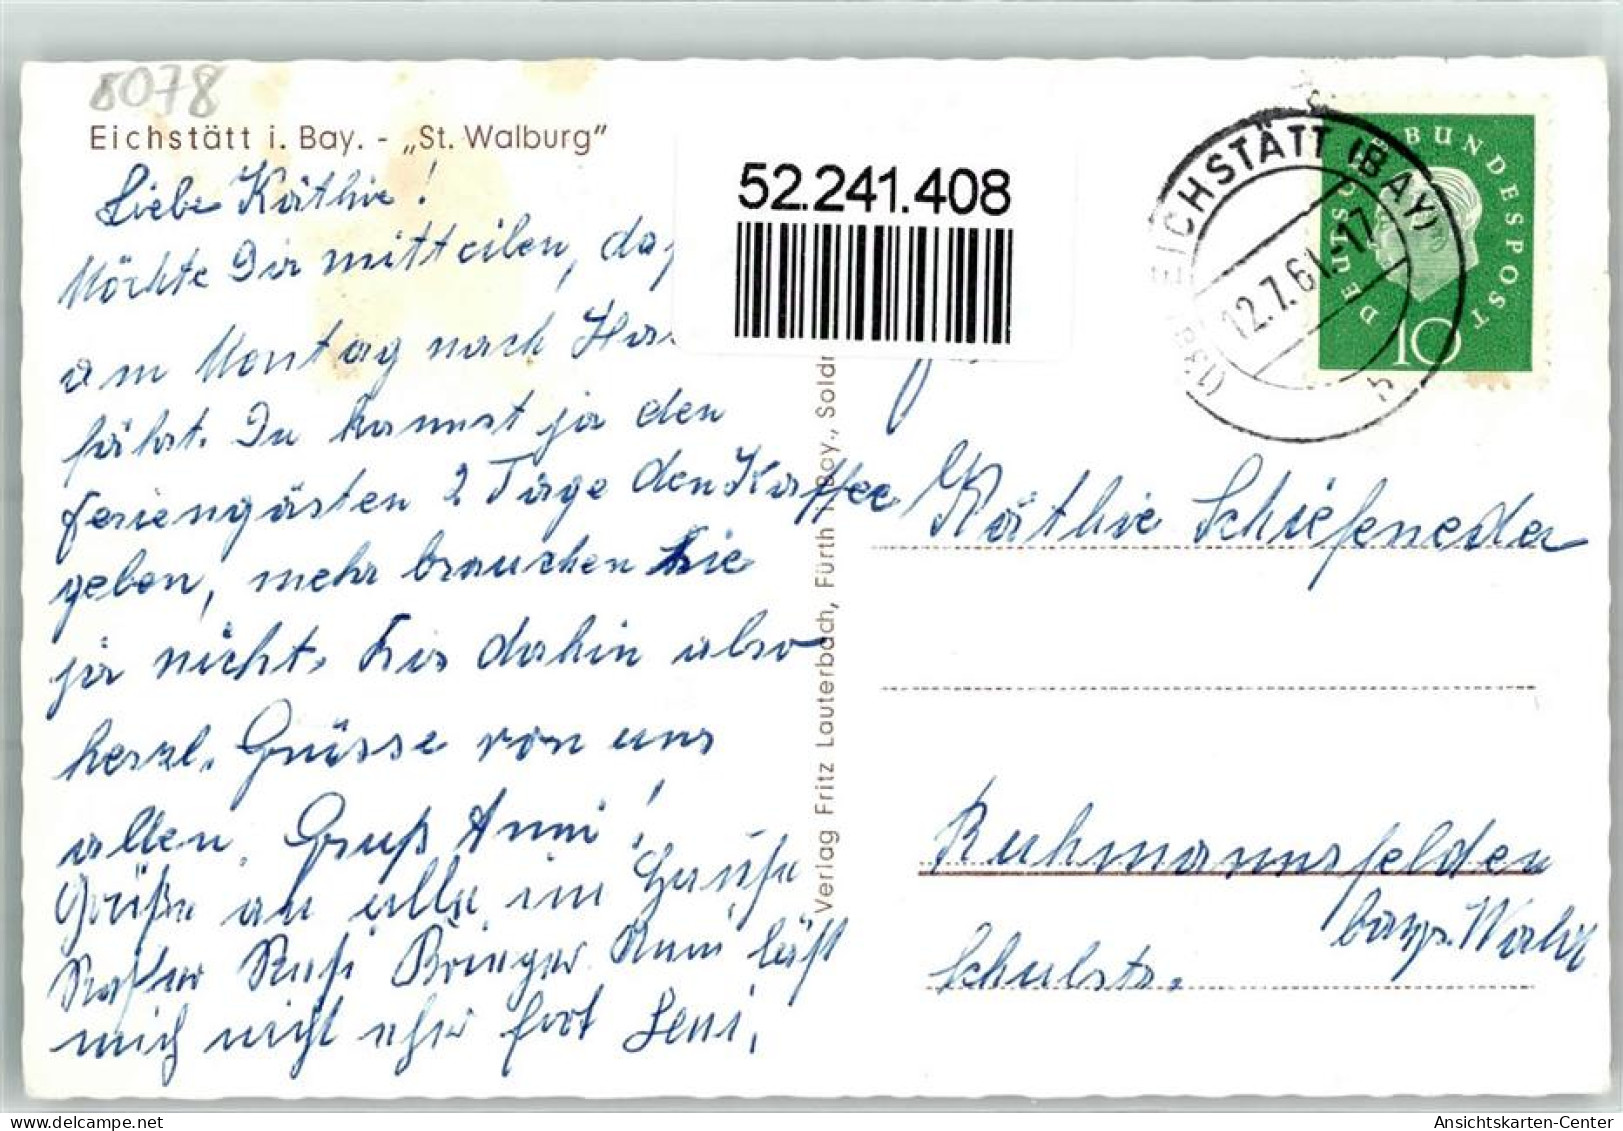 8078
Eichstätt i. Bay. - „St. Walburg"
Liebe Käthie!
Möchte Dir mitteilen, daß
am Montag nach
fährt. Du kannst ja den
Feriengästen 2 Tage den Kaffee
geben, mehr brauchen Sie
ja nicht. Bis dahin also
herzl. Grüsse von uns
allen. Gruß Anni!
Grüße an alle im Hause
mich nicht eher fort Leni.
52.241.408
Verlag Fritz Lauterbach, Fürth i. Bay., Soldn
EICHSTÄTT (BAY)
12.7.61.-17
h
DEUTSCHE BUNDESPOST
10
Käthie Schiefeneder
Ruhmannsfelden
bayr. Wald
Schulstr.
delcampe.net
Ansichtskarten-Center